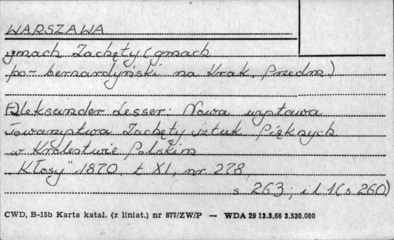 WARSZAWA
gmach Zachęty (gmach
po-bernardyński na Krak. Przedm.)
Aleksander Lesser: Nowa wystawa
Towarzystwa Zachęty Sztuk Pięknych
w Królestwie Polskim
"Kłosy" 1870, t. XI, nr 278,
s 263; il 1 (s 260)
CWD, B-15b Karta katal. (z liniat.) nr 877/ZW/P — WDA 29 13.5.66 3.530.000